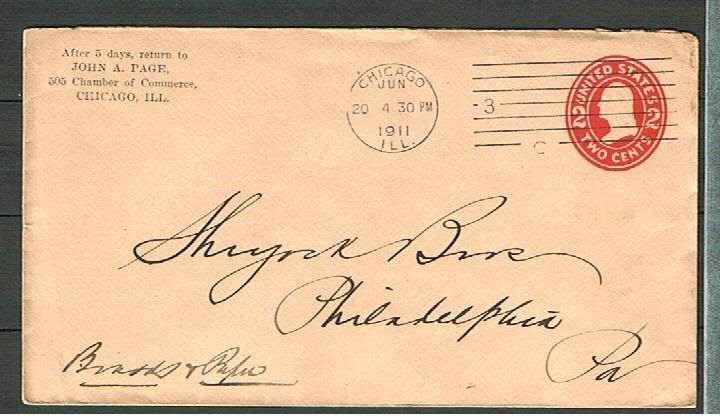 After 5 days, return to
JOHN A. PAGE,
505 Chamber of Commerce,
CHICAGO, ILL.
CHICAGO
JUN
20 4 30 PM
1911
ILL.
3
C
UNITED STATES
2 2
TWO CENTS
Shryock Bros
Philadelphia
Pa
Boards & Paper